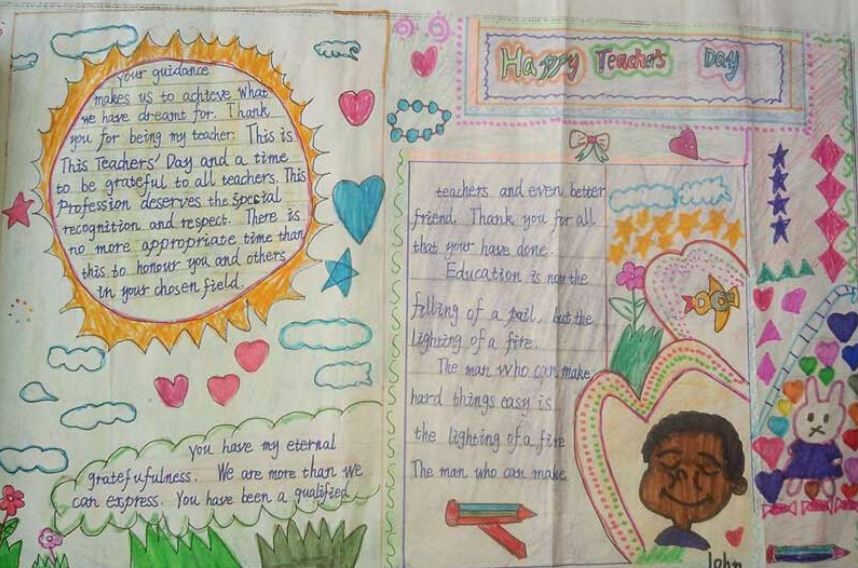 Happy Teachers Day
your guidance
makes us to achieve what
we have dreamt for. Thank
you for being my teacher. This is
This Teachers' Day and a time
to be grateful to all teachers. This
Profession deserves the special
recognition and respect. There is
no more appropriate time than
this to honour you and others
in your chosen field.
you have my eternal
gratefufulness. We are more than we
can express. You have been a qualified
teachers and even better
friend. Thank you for all
that your have done.
Education is now the
filling of a pail, but the
lighting of a fire.
The man who can make
hard things easy is
the lighting of a fire
The man who can make
John